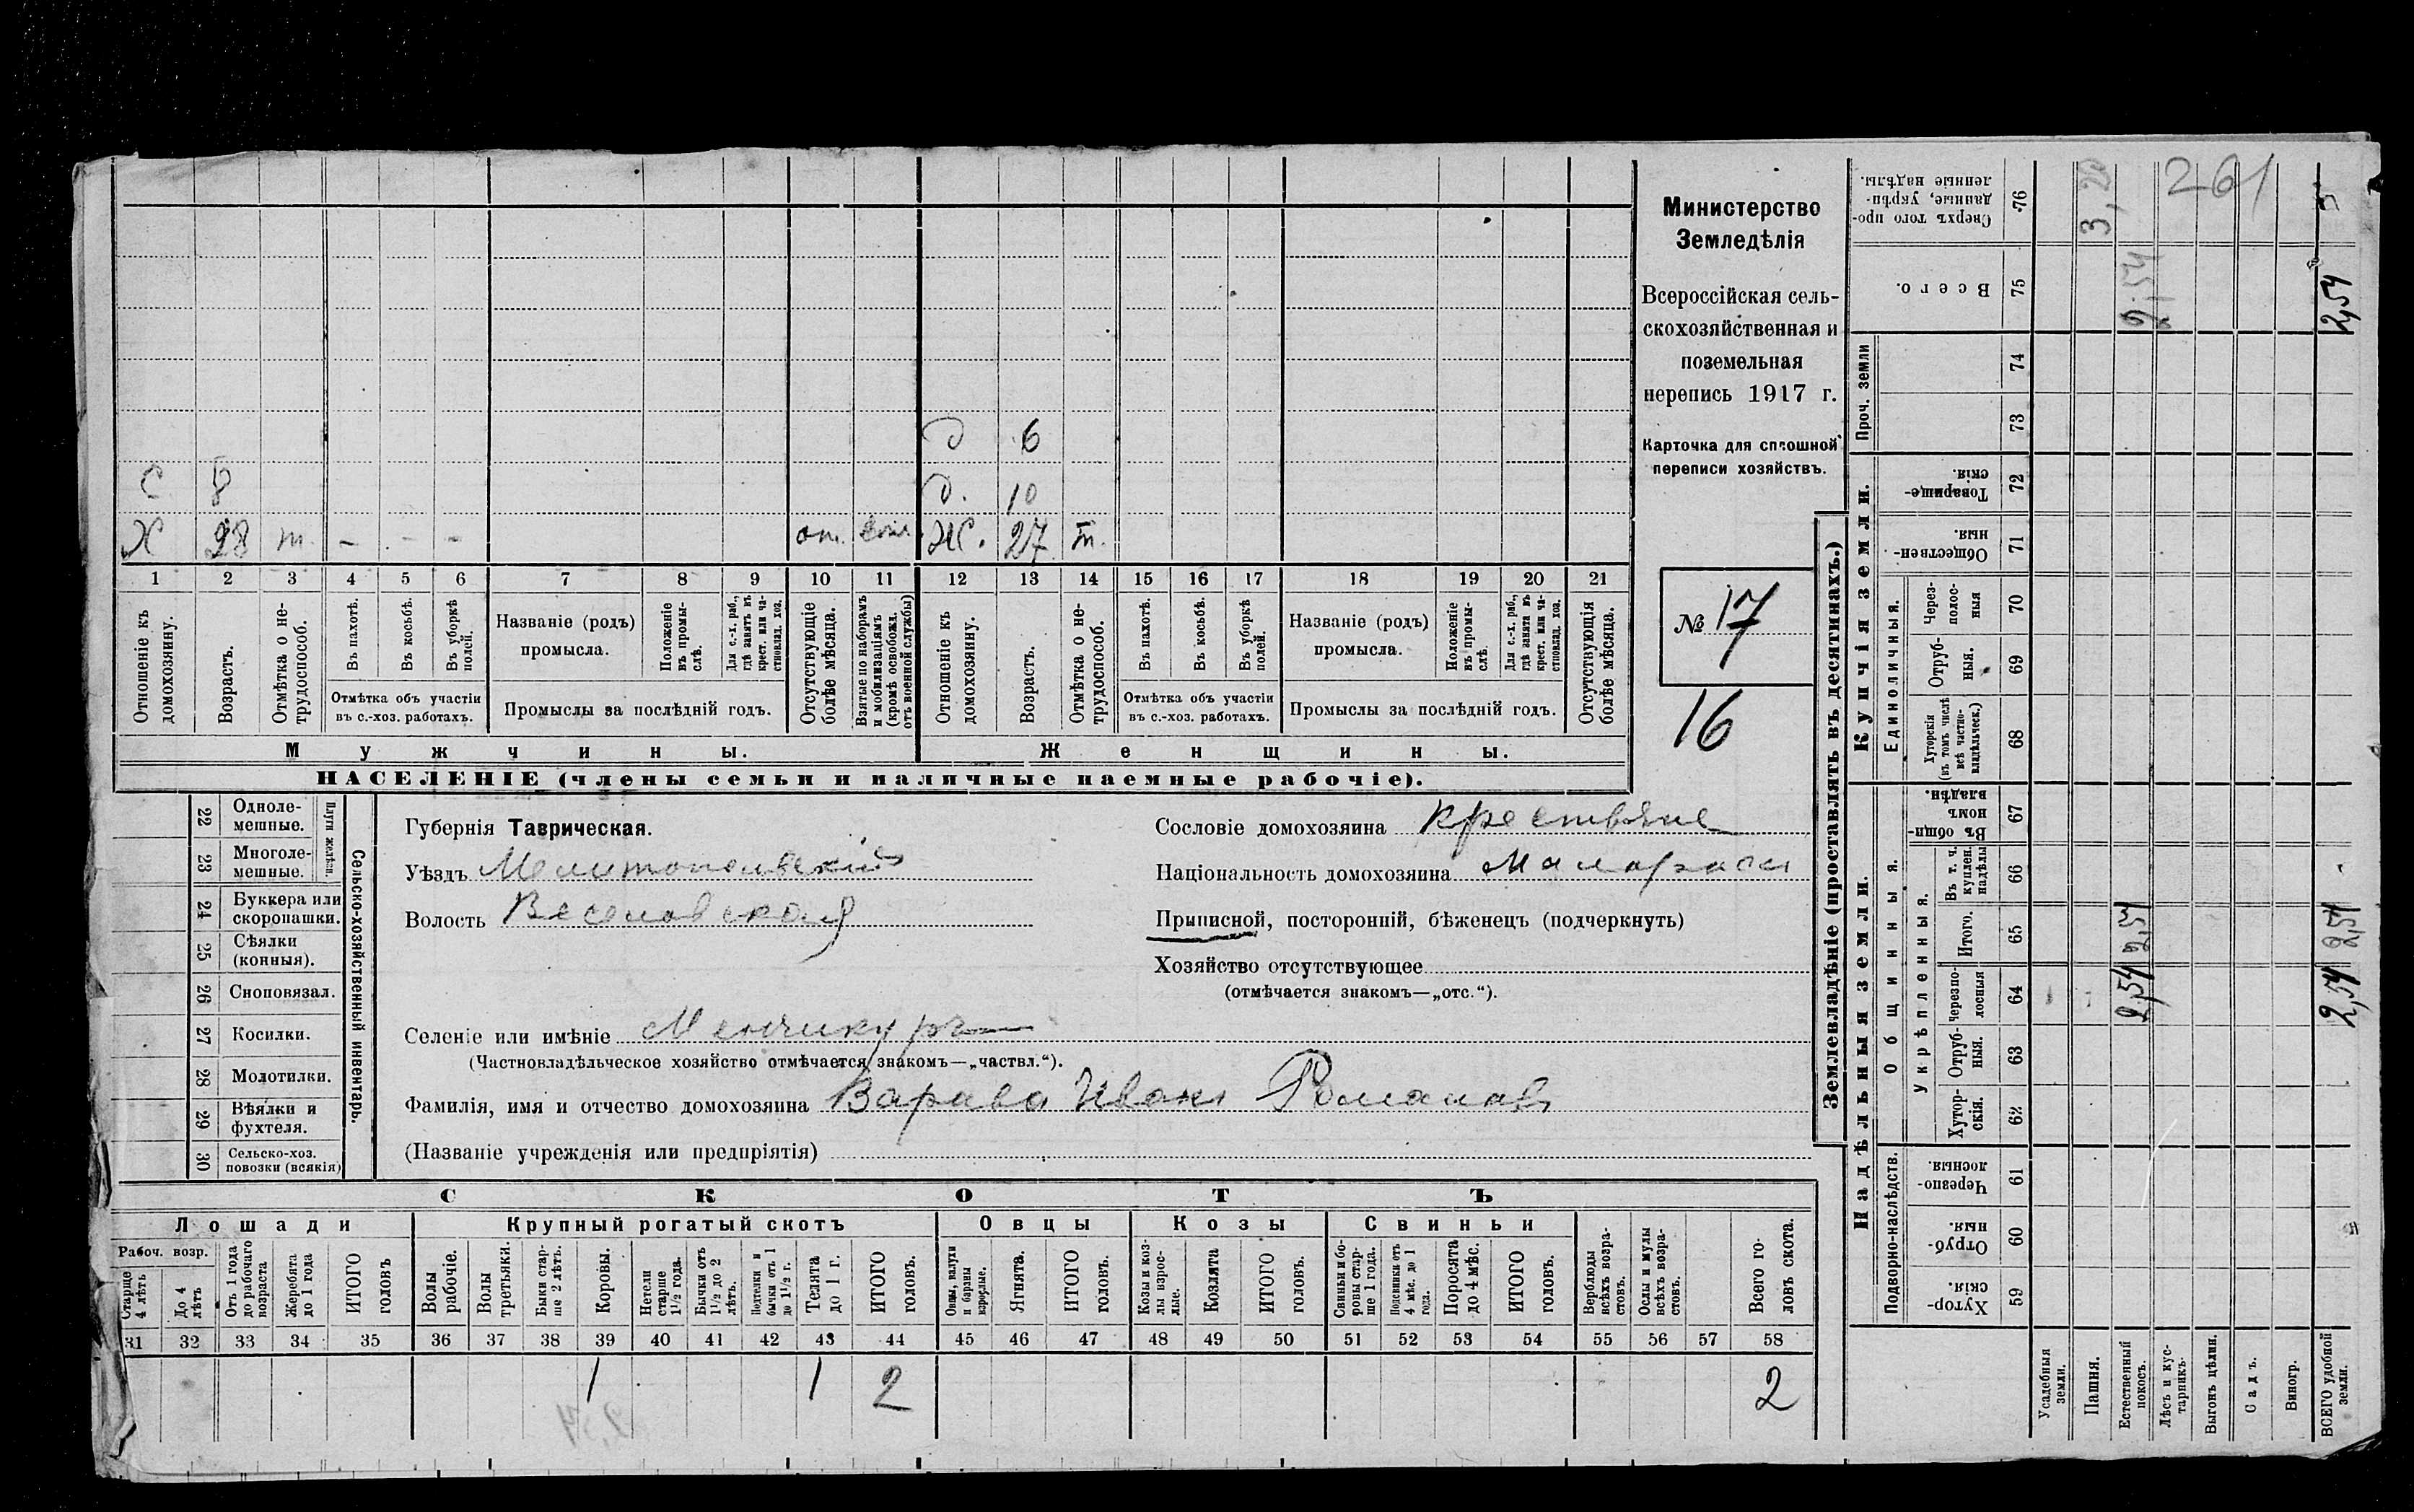 Министерство
Земледѣлія
Всероссійская сель-
скохозяйственная и
поземельная
перепись 1917 г.
Карточка для сплошной
переписи хозяйствъ.
№ 17
16
д 6
С 8 д. 10
Х 28 т. - - - от. Ж. 27 т.
1 2 3 4 5 6 7 8 9 10 11 12 13 14 15 16 17 18 19 20 21
Отношеніе къ домохозяину.
Возрастъ.
Отмѣтка о не-трудоспособ.
Въ пахотѣ.
Въ косьбѣ.
Въ уборкѣ полей.
Отмѣтка объ участіи
въ с.-хоз. работахъ.
Названіе (родъ)
промысла.
Положеніе въ промы-слѣ.
Для с.-х. раб., гдѣ занятъ въ крест. или ча-стновлад. хоз.
Промыслы за послѣдній годъ.
Отсутствующіе болѣе мѣсяца.
Взятые по наборамъ и мобилизаціямъ (кромѣ освобожд. отъ военной службы)
Отношеніе къ домохозяину.
Возрастъ.
Отмѣтка о не-трудоспособ.
Въ пахотѣ.
Въ косьбѣ.
Въ уборкѣ полей.
Отмѣтка объ участіи
въ с.-хоз. работахъ.
Названіе (родъ)
промысла.
Положеніе въ промы-слѣ.
Для с.-х. раб., гдѣ занята въ крест. или ча-стновлад. хоз.
Промыслы за послѣдній годъ.
Отсутствующія болѣе мѣсяца.
Мужчины. Женщины.
НАСЕЛЕНІЕ (члены семьи и наличные наемные рабочіе).
22 Одноле-мешные.
23 Многоле-мешные.
Плуги желѣзн.
24 Буккера или скоропашки.
25 Сѣялки (конныя).
26 Сноповязал.
27 Косилки.
28 Молотилки.
29 Вѣялки и фухтеля.
30 Сельско-хоз. повозки (всякія)
Сельско-хозяйственный инвентарь.
Губернія Таврическая.
Уѣздъ Мелитопольскій
Волость Веселовская
Сословіе домохозяина крестьяне
Національность домохозяина Малоросс
Приписной, посторонній, бѣженецъ (подчеркнуть)
Хозяйство отсутствующее
(отмѣчается знакомъ—„отс.“).
Селеніе или имѣніе Менчикуръ
(Частновладѣльческое хозяйство отмѣчается знакомъ—„частвл.“).
Фамилія, имя и отчество домохозяина Варава Иванъ Романовъ
(Названіе учрежденія или предпріятія)
СКОТЪ
Лошади Крупный рогатый скотъ Овцы Козы Свиньи
Рабоч. возр.
Старше 4 лѣтъ
До 4 лѣтъ
Отъ 1 года до рабочаго возраста
Жеребята до 1 года
ИТОГО головъ
Волы рабочіе.
Волы третьяки.
Быки стар-ше 2 лѣтъ.
Коровы.
Нетели старше 1½ года.
Бычки отъ 1½ до 2 лѣтъ.
Подтелки и бычки отъ 1 до 1½ г.
Телята до 1 г.
ИТОГО головъ.
Овцы, валухи и бараны взрослые.
Ягнята.
ИТОГО головъ.
Козы и коз-лы взрос-лые.
Козлята
ИТОГО головъ.
Свиньи и бо-ровы стар-ше 1 года.
Подсвинки отъ 4 мѣс. до 1 года.
Поросята до 4 мѣс.
ИТОГО головъ.
Верблюды всѣхъ возра-стовъ.
Ослы и мулы всѣхъ возра-стовъ.
Всего го-ловъ скота.
31 32 33 34 35 36 37 38 39 40 41 42 43 44 45 46 47 48 49 50 51 52 53 54 55 56 57 58
1 1 2 2
Землевладѣніе (проставлять въ десятинахъ.)
Надѣльныя земли. Купчія земли. Проч. земли
Подворно-наслѣдств.
Общинныя.
Укрѣпленныя.
Единоличныя.
Хутор-скія. 59
Отруб-ныя. 60
Черезпо-лосныя. 61
Хутор-скія. 62
Отруб-ныя. 63
черезпо-лосныя 64
Итого. 65
Въ т. ч. куплен. надѣлы 66
Въ общи-номъ владѣн. 67
Хуторскія (въ томъ числѣ всѣ частно-владѣльческ.) 68
Отруб-ныя. 69
Через-полос-ныя 70
Обществен-ныя. 71
Товарище-скія. 72
73
74
Всего. 75
Сверхъ того про-данные, укрѣп-ленные надѣлы. 76
Усадебныя земли.
Пашня. 3,20
Естественный покосъ. 2,54 2,54 2,54
Лѣсъ и кус-тарникъ.
Выгонъ цѣлин.
Садъ.
Виногр.
ВСЕГО удобной земли. 2,54 2,54 2,54
261